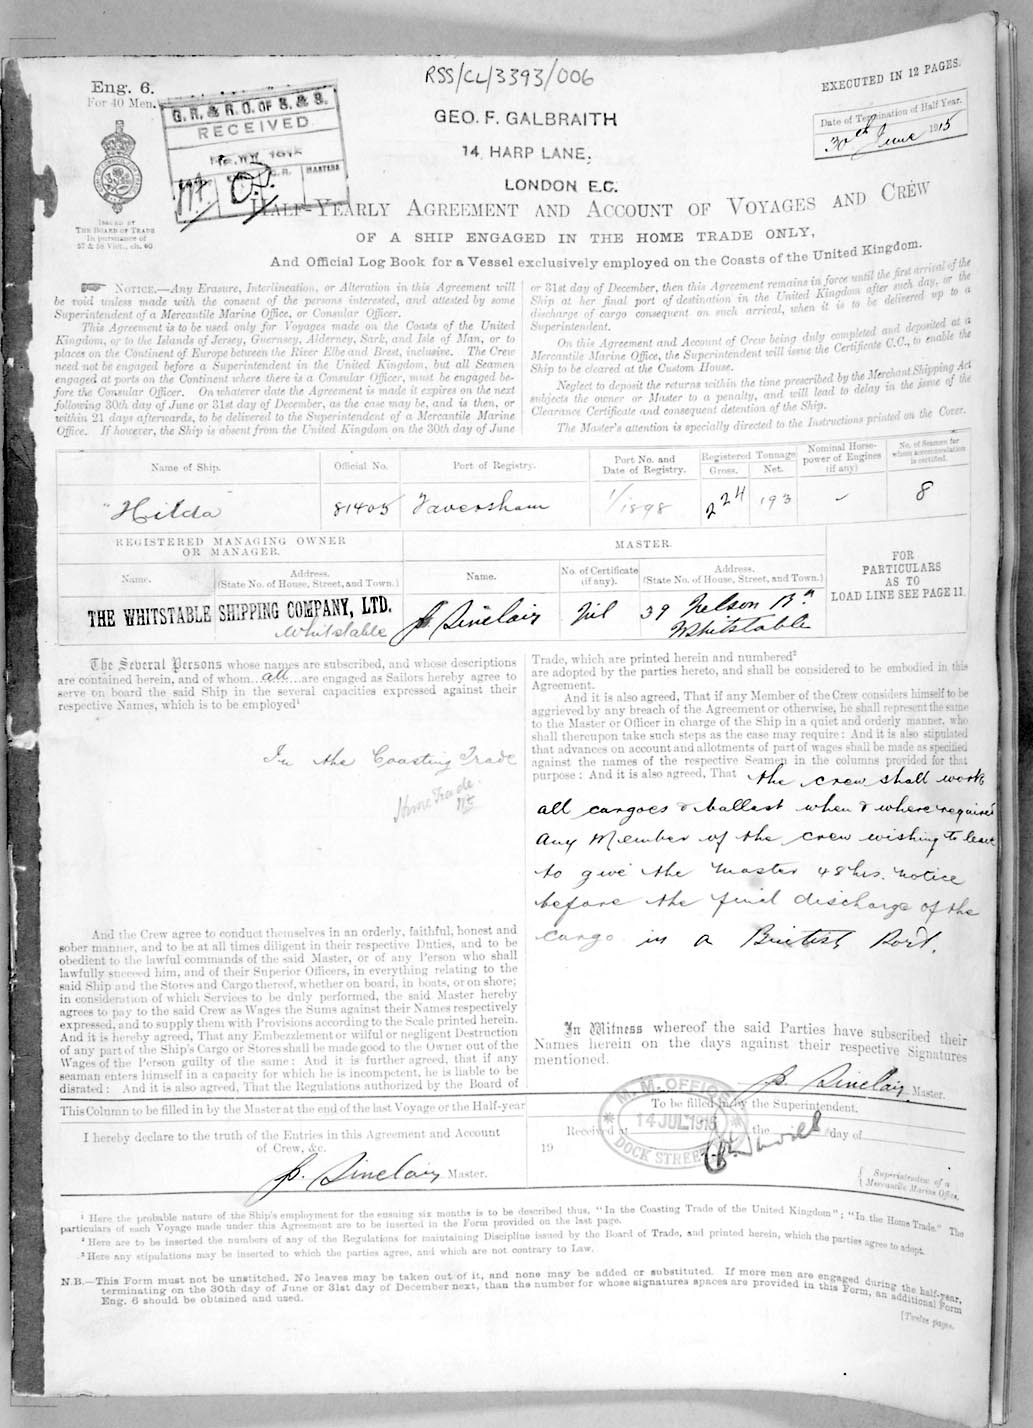 RSS/CL/3393/006
EXECUTED IN 12 PAGES.
Eng. 6.
For 40 Men.
G. R. & R. O. OF S. & S.
RECEIVED
MASTERS
GEO. F. GALBRAITH
14, HARP LANE,
LONDON E.C.
Date of Termination of Half Year.
30th June 1915
ISSUED BY
THE BOARD OF TRADE
In pursuance of
57 & 58 Vict., ch. 60
HALF-YEARLY AGREEMENT AND ACCOUNT OF VOYAGES AND CREW
OF A SHIP ENGAGED IN THE HOME TRADE ONLY,
And Official Log Book for a Vessel exclusively employed on the Coasts of the United Kingdom.
NOTICE.—Any Erasure, Interlineation, or Alteration in this Agreement will
be void unless made with the consent of the persons interested, and attested by some
Superintendent of a Mercantile Marine Office, or Consular Officer.
This Agreement is to be used only for Voyages made on the Coasts of the United
Kingdom, or to the Islands of Jersey, Guernsey, Alderney, Sark, and Isle of Man, or to
places on the Continent of Europe between the River Elbe and Brest, inclusive. The Crew
need not be engaged before a Superintendent in the United Kingdom, but all Seamen
engaged at ports on the Continent where there is a Consular Officer, must be engaged be-
fore the Consular Officer. On whatever date the Agreement is made it expires on the next
following 30th day of June or 31st day of December, as the case may be, and is then, or
within 21 days afterwards, to be delivered to the Superintendent of a Mercantile Marine
Office. If however, the Ship is absent from the United Kingdom on the 30th day of June
or 31st day of December, then this Agreement remains in force until the first arrival of the
Ship at her final port of destination in the United Kingdom after such day, or the
discharge of cargo consequent on such arrival, when it is to be delivered up to a
Superintendent.
On this Agreement and Account of Crew being duly completed and deposited at a
Mercantile Marine Office, the Superintendent will issue the Certificate C.C., to enable the
Ship to be cleared at the Custom House.
Neglect to deposit the returns within the time prescribed by the Merchant Shipping Act
subjects the owner or Master to a penalty, and will lead to delay in the issue of the
Clearance Certificate and consequent detention of the Ship.
The Master's attention is specially directed to the Instructions printed on the Cover.
Name of Ship. Official No. Port of Registry. Port No. and Date of Registry. Registered Tonnage Gross. Net. Nominal Horse-power of Engines (if any) No. of Seamen for whom accommodation is certified.
"Hilda" 81405 Faversham 1/1898 224 193 8
REGISTERED MANAGING OWNER
OR MANAGER.
MASTER.
FOR
PARTICULARS
AS TO
LOAD LINE SEE PAGE 11.
Name. Address. (State No. of House, Street, and Town.) Name. No. of Certificate (if any). Address. (State No. of House, Street, and Town.)
THE WHITSTABLE SHIPPING COMPANY, LTD.
Whitstable
J. Sinclair Nil 39 Nelson Rd
Whitstable
The Several Persons whose names are subscribed, and whose descriptions
are contained herein, and of whom all are engaged as Sailors hereby agree to
serve on board the said Ship in the several capacities expressed against their
respective Names, which is to be employed¹
In the Coasting Trade
Home Trade
And the Crew agree to conduct themselves in an orderly, faithful, honest and
sober manner, and to be at all times diligent in their respective Duties, and to be
obedient to the lawful commands of the said Master, or of any Person who shall
lawfully succeed him, and of their Superior Officers, in everything relating to the
said Ship and the Stores and Cargo thereof, whether on board, in boats, or on shore;
in consideration of which Services to be duly performed, the said Master hereby
agrees to pay to the said Crew as Wages the Sums against their Names respectively
expressed, and to supply them with Provisions according to the Scale printed herein.
And it is hereby agreed, That any Embezzlement or wilful or negligent Destruction
of any part of the Ship's Cargo or Stores shall be made good to the Owner out of the
Wages of the Person guilty of the same: And it is further agreed, that if any
seaman enters himself in a capacity for which he is incompetent, he is liable to be
disrated: And it is also agreed, That the Regulations authorized by the Board of
Trade, which are printed herein and numbered²
are adopted by the parties hereto, and shall be considered to be embodied in this
Agreement.
And it is also agreed, That if any Member of the Crew considers himself to be
aggrieved by any breach of the Agreement or otherwise, he shall represent the same
to the Master or Officer in charge of the Ship in a quiet and orderly manner, who
shall thereupon take such steps as the case may require: And it is also stipulated
that advances on account and allotments of part of wages shall be made as specified
against the names of the respective Seamen in the columns provided for that
purpose: And it is also agreed, That the crew shall work
all cargoes & ballast when & where required
any Member of the crew wishing to leave
to give the Master 48 hrs. notice
before the final discharge of the
cargo in a British Port.
In Witness whereof the said Parties have subscribed their
Names herein on the days against their respective Signatures
mentioned.
J. Sinclair, Master.
This Column to be filled in by the Master at the end of the last Voyage or the Half-year
I hereby declare to the truth of the Entries in this Agreement and Account
of Crew, &c.
J. Sinclair Master.
To be filled in by the Superintendent.
Received at the
19 day of
M. M. OFFICE
14 JUL 1915
DOCK STREET
Superintendent of a
Mercantile Marine Office.
¹ Here the probable nature of the Ship's employment for the ensuing six months is to be described thus, "In the Coasting Trade of the United Kingdom"; "In the Home Trade." The
particulars of each Voyage made under this Agreement are to be inserted in the Form provided on the last page.
² Here are to be inserted the numbers of any of the Regulations for maintaining Discipline issued by the Board of Trade, and printed herein, which the parties agree to adopt.
³ Here any stipulations may be inserted to which the parties agree, and which are not contrary to Law.
N.B.—This Form must not be unstitched. No leaves may be taken out of it, and none may be added or substituted. If more men are engaged during the half-year,
terminating on the 30th day of June or 31st day of December next, than the number for whose signatures spaces are provided in this Form, an additional Form
Eng. 6 should be obtained and used.
[Twelve pages.